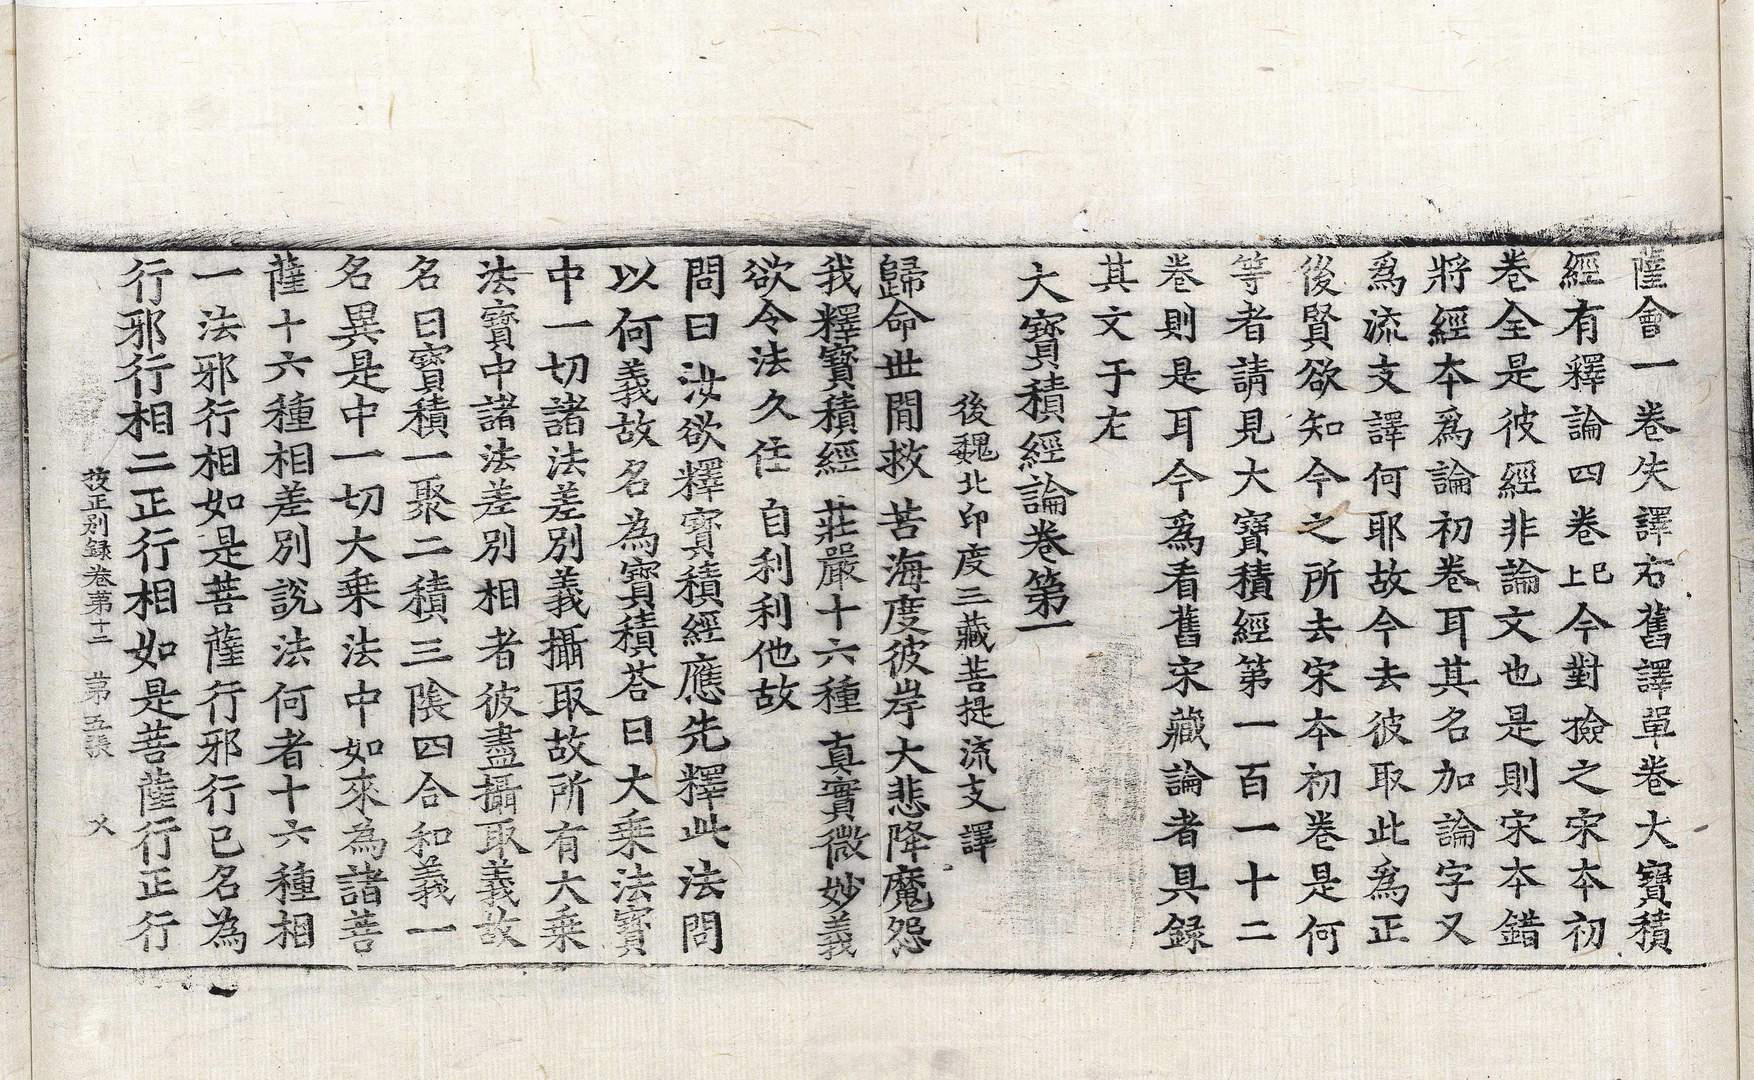 薩會一卷失譯右舊譯單卷大寶積
經有釋論四卷已上今對撿之宋本初
卷全是彼經非論文也是則宋本錯
將經本爲論初卷耳其名加論字又
爲流支譯何耶故今去彼取此爲正
後賢欲知今之所去宋本初卷是何
等者請見大寶積經第一百一十二
卷則是耳今爲看舊宋藏論者具録
其文于左
大寶積經論卷第一
後魏北印度三藏菩提流支譯
歸命世間救 苦海度彼岸大悲降魔怨
我釋寶積經 莊嚴十六種 真實微妙義
欲令法久住 自利利他故
問曰汝欲釋寶積經應先釋此法問
以何義故名為寶積荅曰大乗法寶
中一切諸法差别義攝取故所有大乗
法寶中諸法差别相者彼盡攝取義故
名曰寶積一聚二積三陰四合和義一
名異是中一切大乗法中如來為諸菩
薩十六種相差别說法何者十六種相
一法邪行相如是菩薩行邪行已名為
行邪行相二正行相如是菩薩行正行
挍正别録卷第十二 第五張 㸚